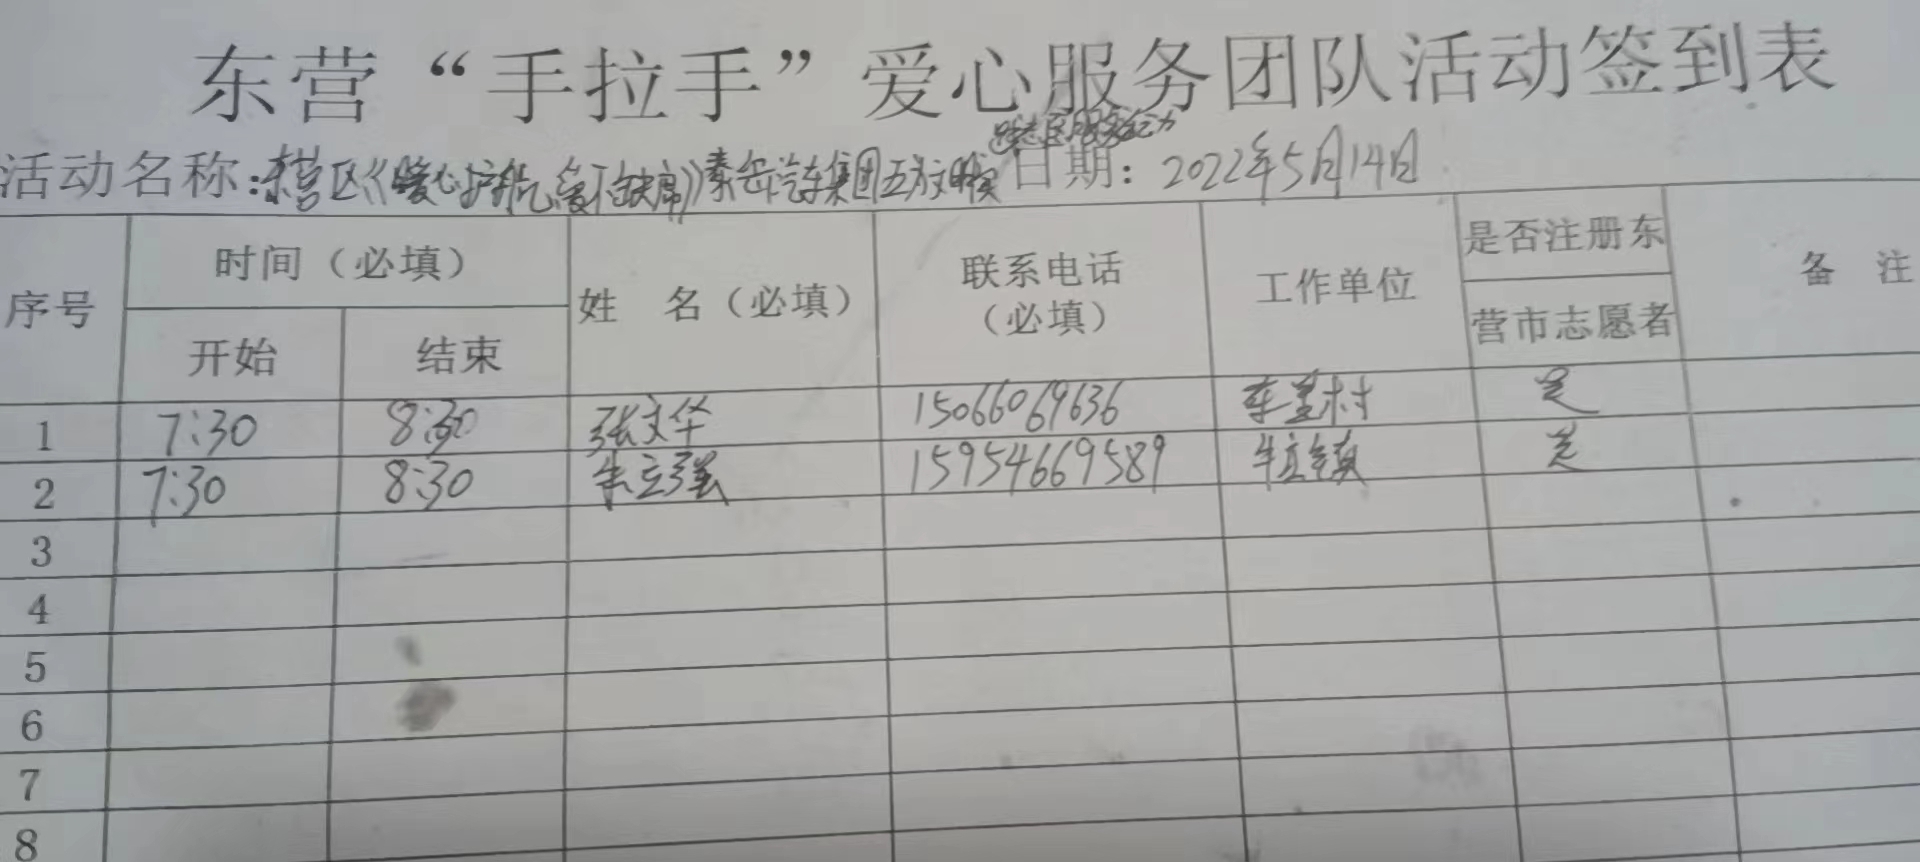 东营“手拉手”爱心服务团队活动签到表
社区服务活动
活动名称:东营区《暖心护航、爱不缺席》泰岳汽车集团五方文明 日期:2022年5月14日
序号 时间(必填) 姓 名(必填) 联系电话(必填) 工作单位 是否注册东营市志愿者 备 注
开始 结束
1 7:30 8:30 张文华 15066069636 村 是
2 7:30 8:30 朱立强 15954669589 镇 是
3
4
5
6
7
8